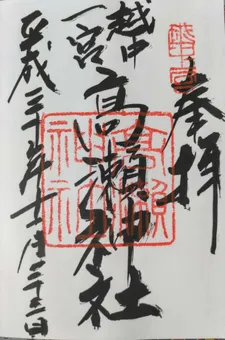 奉拝
越中
一宮
高瀬神社
平成三十年十一月二十三日